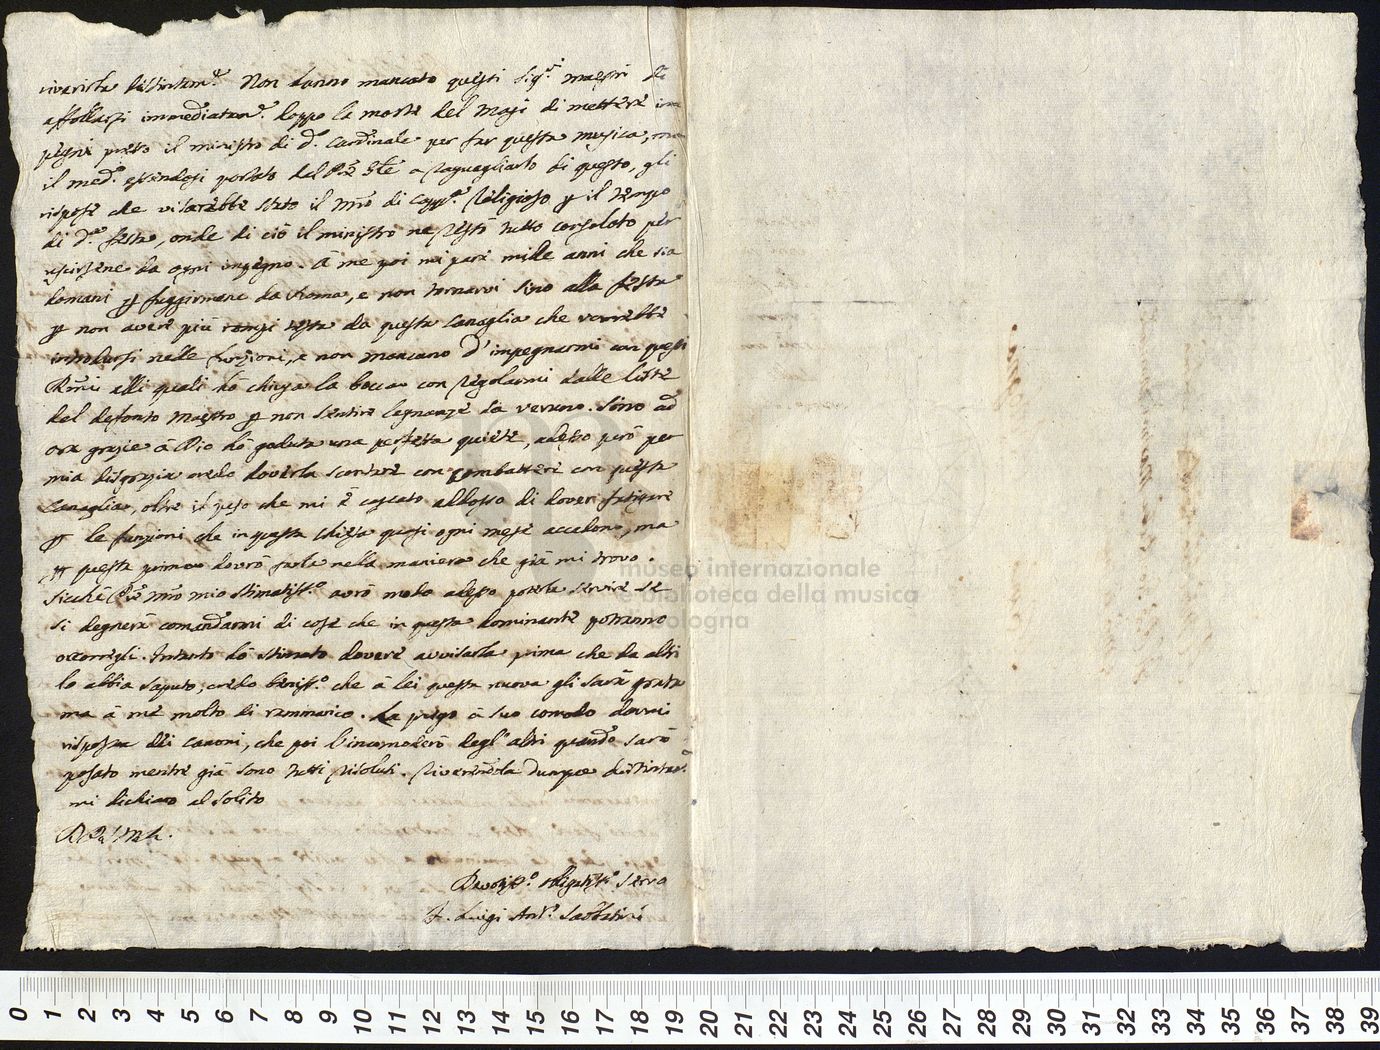 riverirla distintam.te Non hanno mancato questi Sig.ri maestri di
affollarsi immediatam.te doppo la morte del Masi di mettere im
pegni presso il ministro di d.o Cardinale per far questa musica, ma
il med.o essendosi portato dal P̃re Gt̃e a raguagliarlo di questo, gli
rispose che vi sarebbe stato il Mr̃o di Capp.la Religioso p il tempo
di d.a festa, onde di ciò il ministro ne restò tutto consolato per
uscirsene da ogni impegno. A me poi mi pare mille anni che sia
domani p fuggirmene da Roma, e non tornarvi sino alla festa
p non avere più rompi testa da questa Canaglia che vorrebbe
introdursi nelle funzioni, e non mancano d'impegnarmi con questi
alli quali hò chiusa la bocca con regolarmi dalle liste
del defonto Maestro p non sentire lagnanze da veruno. Sino ad
ora grazie à Dio hò goduta una perfetta quiete, adesso però per
mia disgrazia credo doverla scontare con combattere con questa
Canaglia, oltre il peso che mi è cascato addosso di dover fatigare
p le funzioni che in questa chiesa quasi ogni mese accadono, ma
p questa prima dovrò farla nella maniera che già mi trovo.
Sicché P̃re Mr̃o mio stimatiss.o avrò modo adesso poterla servire se
si degnerà comandarmi di cose che in questa dominante potranno
occorrergli. Intanto hò stimato dovere avvisarla prima che da altri
lo abbia saputo, credo beniss.o che à lei questa nuova gli sarà grata
ma à me molto di rammarico. La prego à suo comodo darmi
risposta dei Canoni, che poi l'incomoderò degl'altri quando sarò
posato mentre già sono tutti risoluti. Riverendola dunque distintam.te
mi dichiaro al solito
Devotiss.o obligatiss.o servo
F. Luigi Ant.o Sabbatini
museo internazionale
e biblioteca della musica
di bologna
0 1 2 3 4 5 6 7 8 9 10 11 12 13 14 15 16 17 18 19 20 21 22 23 24 25 26 27 28 29 30 31 32 33 34 35 36 37 38 39